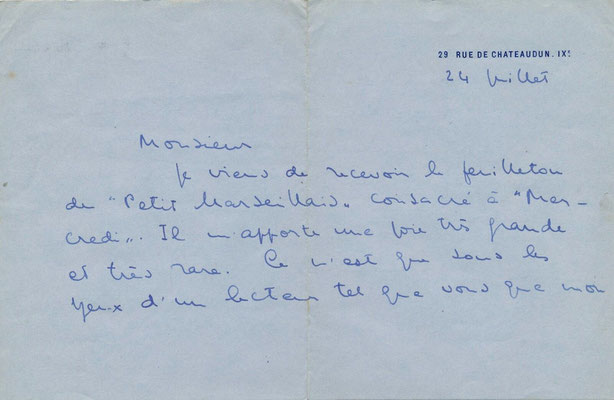 29 RUE DE CHATEAUDUN. IXᵉ
24 juillet
Monsieur
je viens de recevoir le feuilleton
du "Petit Marseillais" consacré à "Mer-
credi". Il m'apporte une joie très grande
et très rare. Ce n'est que sous les
yeux d'un lecteur tel que vous que mon